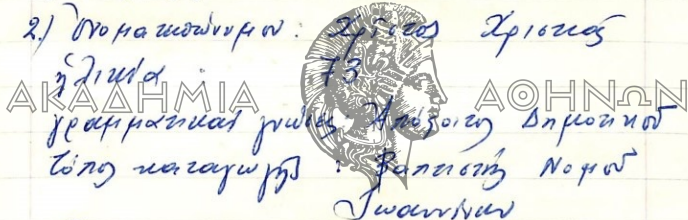 2.) Ὀνοματεπώνυμου: Χρῖστος Χριστᾶς
ἡλικία : 73
ΑΚΑΔΗΜΙΑ ΑΘΗΝΩΝ
γραμματικαί γνώσεις: Ἀπόφοιτος Δημοτικοῦ
τόπος καταγωγῆς : Βαπτιστής Νομοῦ
Ἰωαννίνων